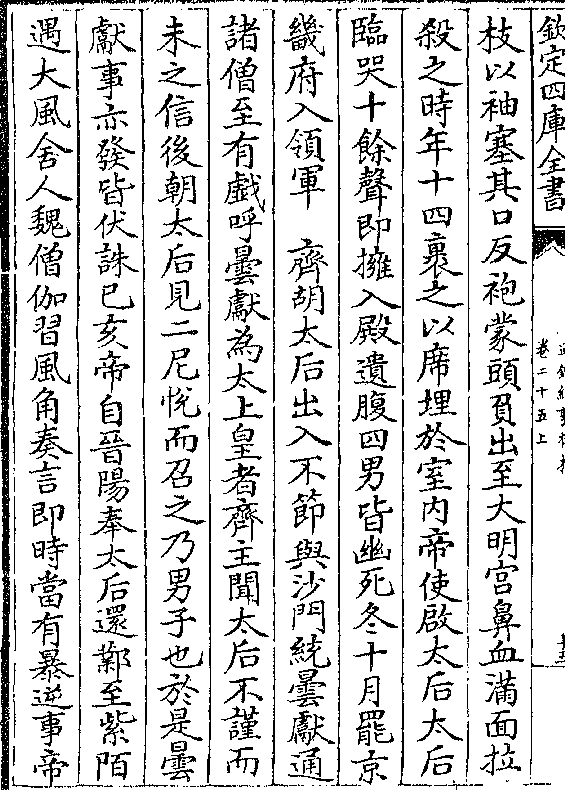 欽定四庫全書
卷二十五上
枝以袖塞其口反袍蒙頭負出至大明宫鼻血滿面拉
殺之時年十四裹之以席埋於室内帝使啟太后太后
臨哭十餘聲即擁入殿遺腹四男皆幽死冬十月罷京
畿府入領軍　齊胡太后出入不節與沙門統曇獻通
諸僧至有戲呼曇獻為太上皇者齊主聞太后不謹而
未之信後朝太后見二尼悦而召之乃男子也於是曇
獻事亦發皆伏誅已亥帝自晉陽奉太后還鄴至紫陌
遇大風舍人魏僧伽習風角奏言即時當有暴逆事帝